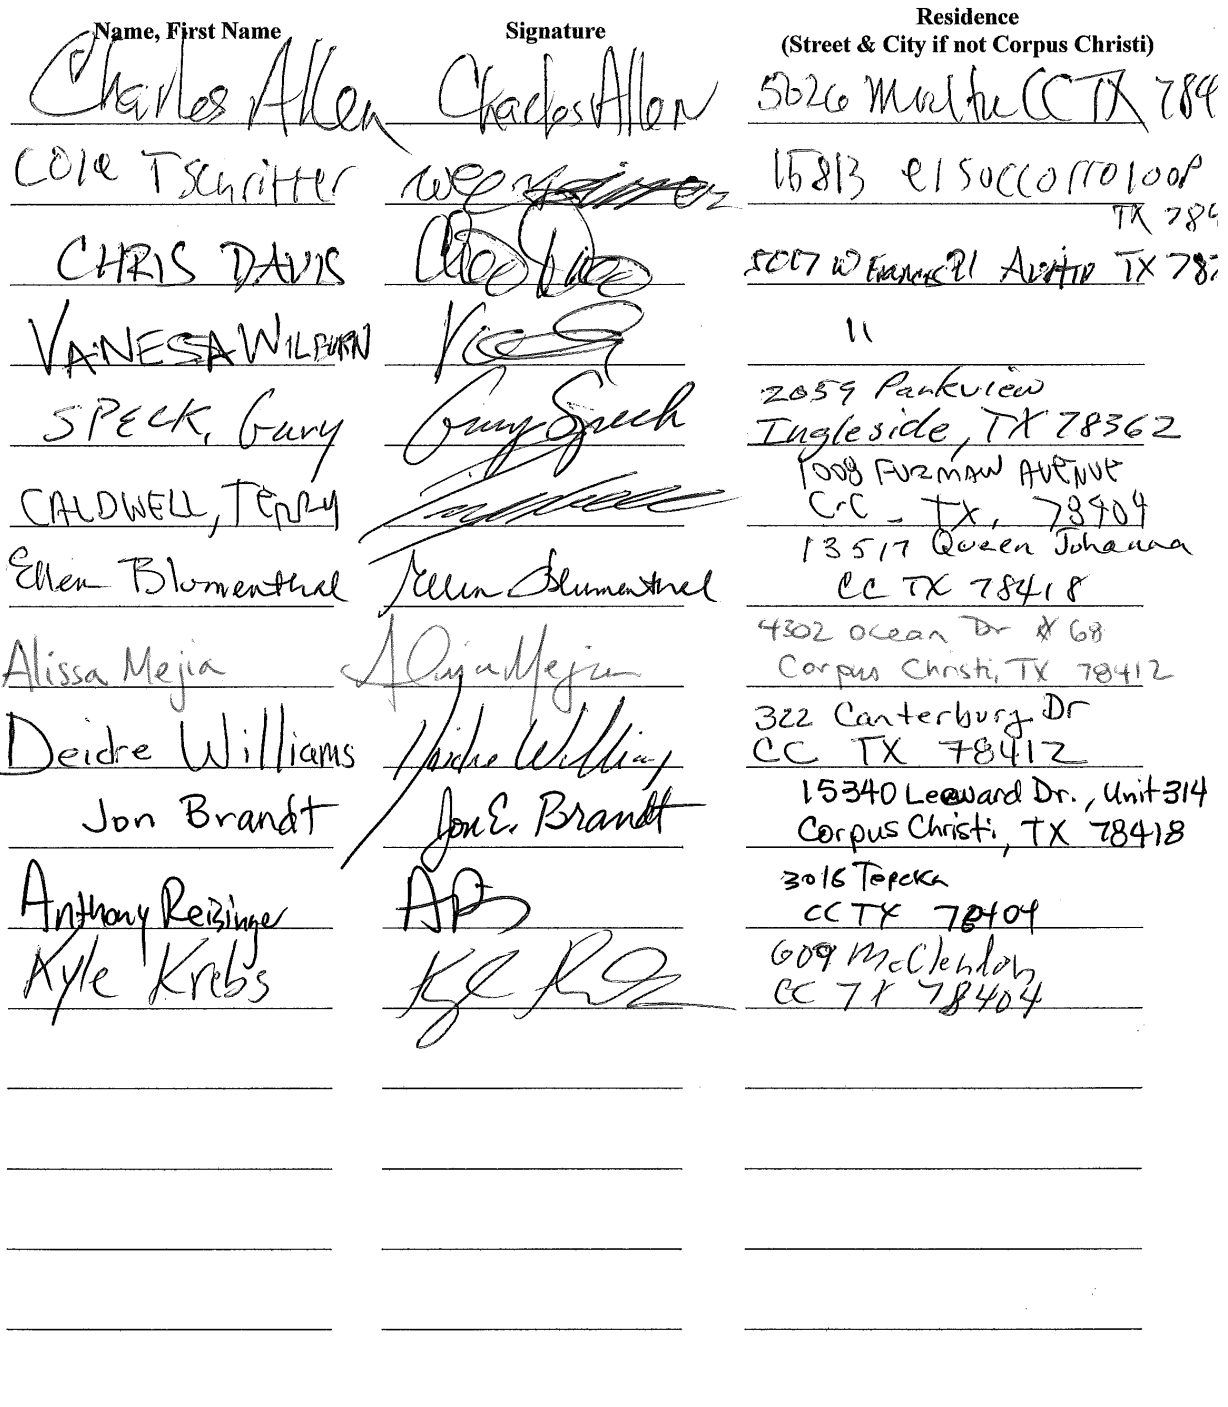 Name, First Name Signature Residence
(Street & City if not Corpus Christi)
Charles Allen Charles Allen 5026 CC TX 784
Cole Tschritter 15813 el soccorro loop
TX 784
CHRIS DAVIS W Francis Pl Austin TX 787
VANESA WILBURN 11
SPECK, Gary Gary Speck 2059 Parkview
Ingleside, TX 78362
CALDWELL, TERRY 1008 FURMAN AVENUE
C.C. TX, 78404
Ellen Blumenthal Ellen Blumenthal 13517 Queen Johanna
CC TX 78418
Alissa Mejia Alissa Mejia 4302 Ocean Dr # 68
Corpus Christi, TX 78412
Deidre Williams Deidre Williams 322 Canterbury Dr
CC TX 78412
Jon Brandt Jon E. Brandt 15340 Leeward Dr., Unit 314
Corpus Christi, TX 78418
Anthony Reisinger 3016 Topeka
CC TX 78404
Kyle Krebs 609 McClendon
CC TX 78404